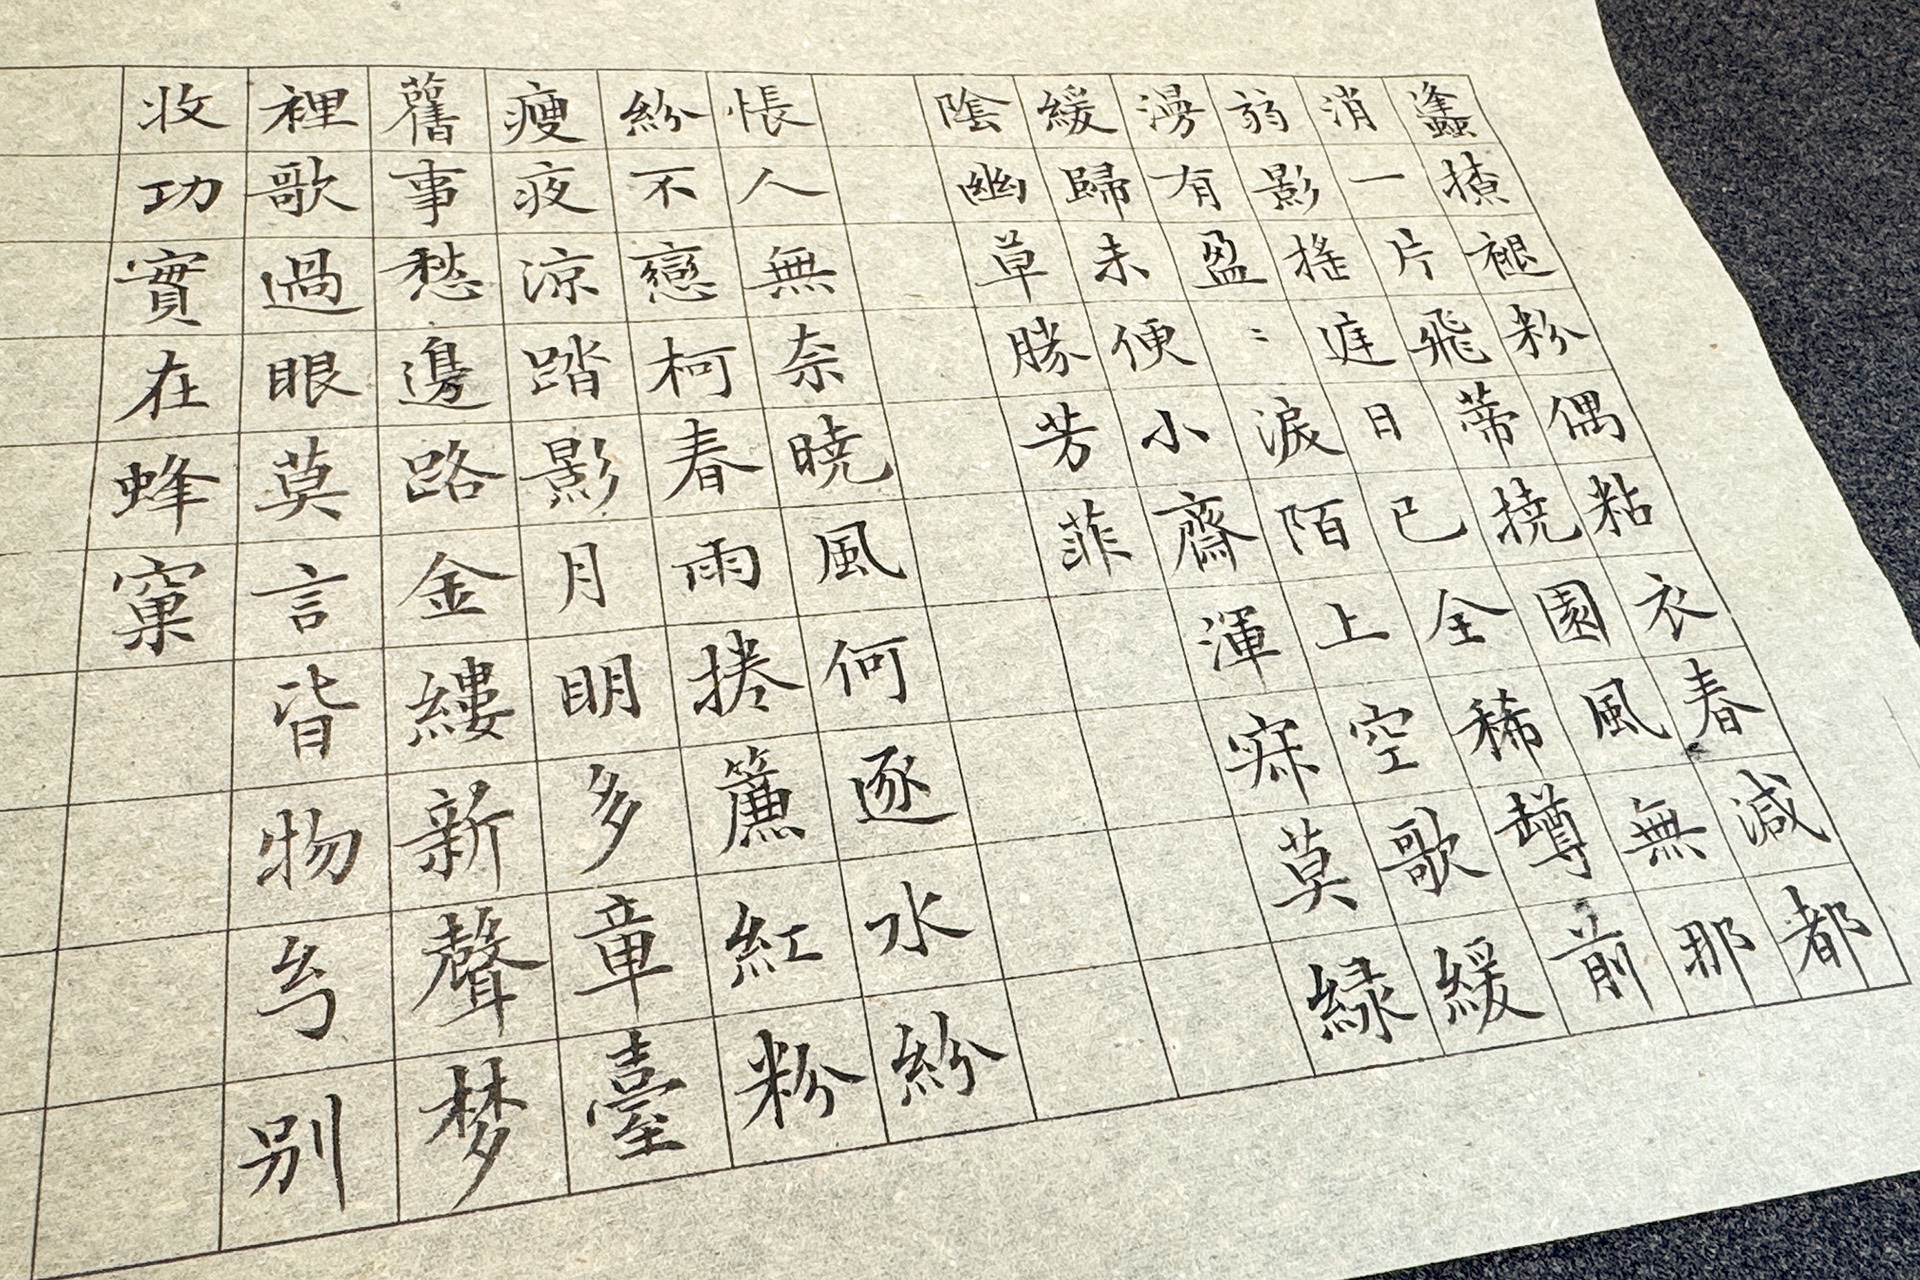 蠭撩褪粉偶粘衣春減都
消一片飛蒂撓園風無那
弱影搖庭日已全稀罇前
漫有盈〻淚陌上空歌緩
緩歸未便小齋渾寂莫綠
陰幽草勝芳菲
悵人無奈曉風何逐水紛
紛不戀柯春雨捲簾紅粉
瘦夜涼踏影月明多章臺
舊事愁邊路金縷新聲梦
裡歌過眼莫言皆物幻别
收功實在蜂窠